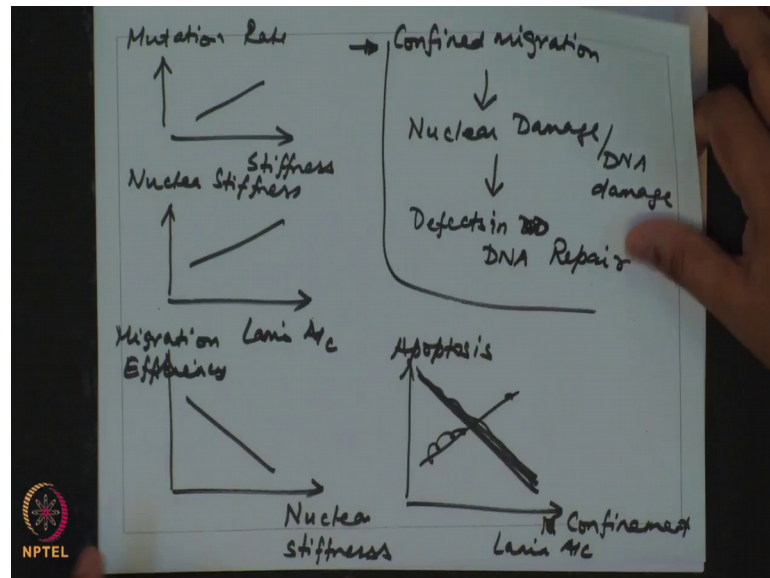 Mutation Rate
Stiffness
Nuclea Stiffness
Lamin A/c
Migration
Efficiency
Nuclear
stiffnesss
→ Confined migration
↓
Nuclear Damage/
DNA
damage
↓
Defects in
DNA Repair
Apoptosis
Confinement
Lamin A/c
NPTEL